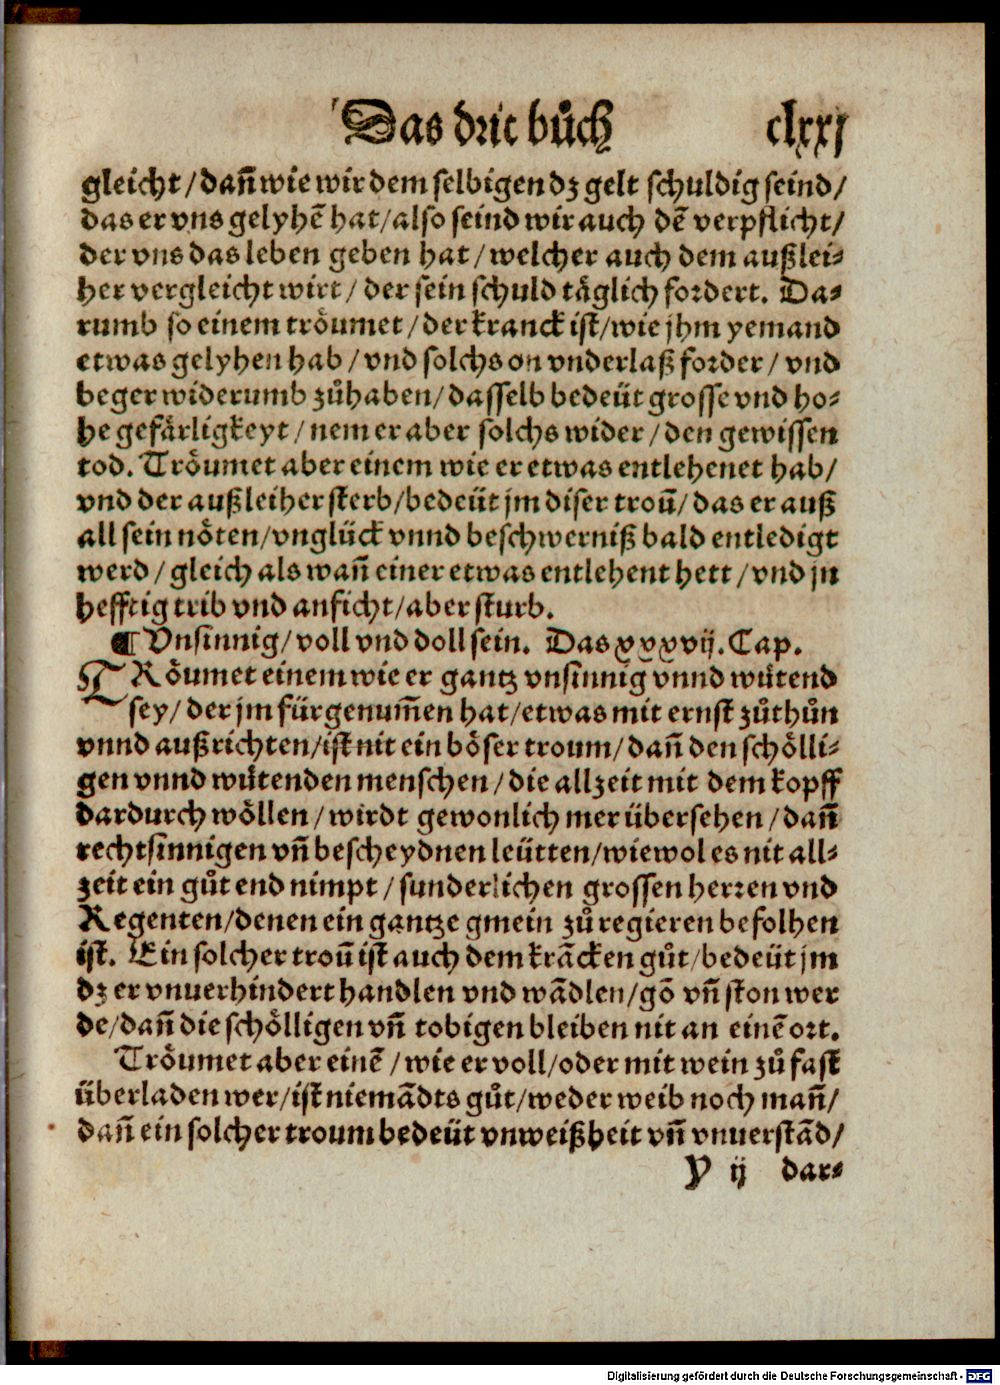 Das drit bůch clxxj
gleicht / dañ wie wir dem selbigen dz gelt schuldig seind /
das er vns gelyhē hat / also seind wir auch dē verpflicht /
der vns das leben geben hat / welcher auch dem außlei-
her vergleicht wirt / der sein schuld täglich fordert. Da-
rumb so einem tröumet / der kranck ist / wie jhm yemand
etwas gelyhen hab / vnd solchs on vnderlaß forder / vnd
beger widerumb zůhaben / dasselb bedeüt grosse vnd ho-
he gefärligkeyt / nem er aber solchs wider / den gewissen
tod. Tröumet aber einem wie er etwas entlehenet hab /
vnd der außleiher sterb / bedeüt jm diser troũ / das er auß
all sein nöten / vnglück vnnd beschwerniß bald entledigt
werd / gleich als wañ einer etwas entlehent hett / vnd jn
hefftig trib vnd anficht / aber sturb.
¶ Vnsinnig / voll vnd doll sein. Das xxxvij. Cap.
TRöumet einem wie er gantz vnsinnig vnnd wütend
sey / der jm fürgenum̃en hat / etwas mit ernst zůthůn
vnnd außrichten / ist nit ein böser troum / dañ den schölli-
gen vnnd wütenden menschen / die allzeit mit dem kopff
dardurch wöllen / wirdt gewonlich mer übersehen / dañ
rechtsinnigen vñ bescheydnen leütten / wiewol es nit all-
zeit ein gůt end nimpt / sunderlichen grossen herren vnd
Regenten / denen ein gantze gmein zů regieren befolhen
ist. Ein solcher troũ ist auch dem krãcken gůt / bedeüt jm
dz er vnuerhindert handlen vnd wãdlen / gõ vñ ston wer
de / dañ die schölligen vñ tobigen bleiben nit an einē ort.
Tröumet aber einē / wie er voll / oder mit wein zů fast
überladen wer / ist niemãdts gůt / weder weib noch mañ /
dañ ein solcher troum bedeüt vnweißheit vñ vnuerstãd /
Y ij dar-
Digitalisierung gefördert durch die Deutsche Forschungsgemeinschaft - DFG